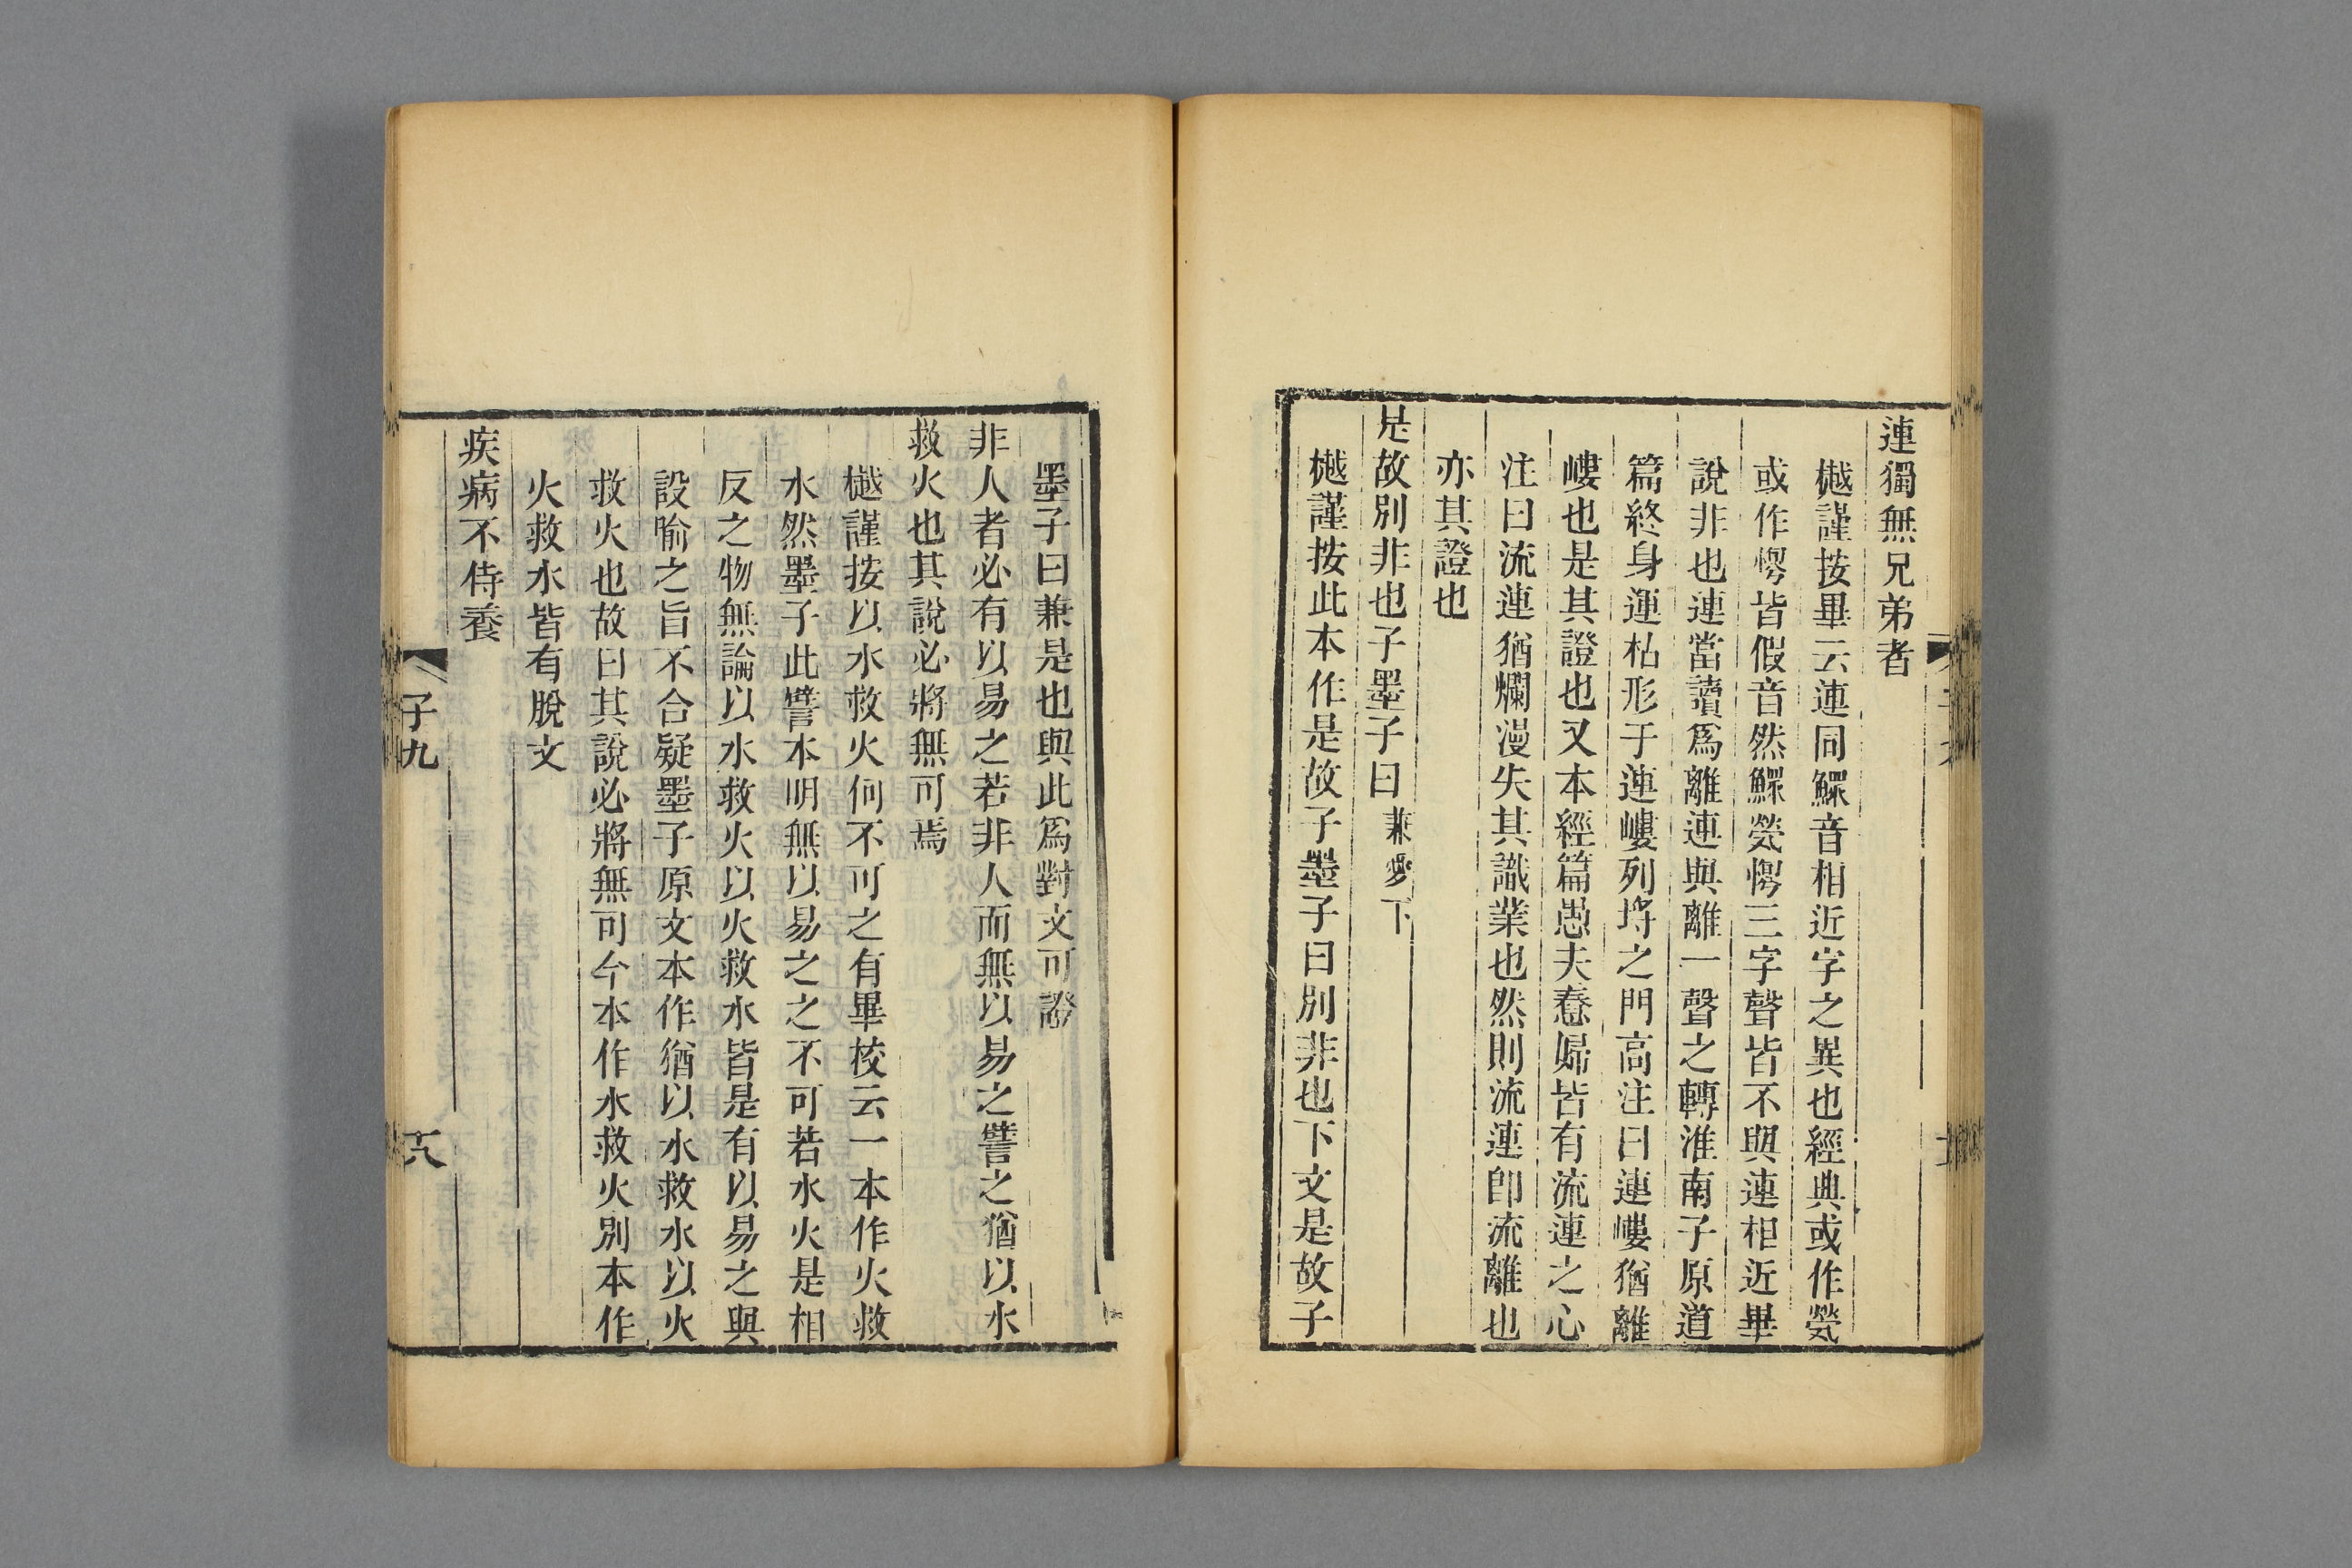 連獨無兄弟者
樾謹按畢云連同鰥音相近字之異也經典或作㷀
或作惸皆假音然鰥㷀惸三字聲皆不與連相近畢
說非也連當讀爲離連與離一聲之轉淮南子原道
篇終身運枯形于連嶁列埒之門高注曰連嶁猶離
嶁也是其證也又本經篇愚夫惷婦皆有流連之心
注曰流連猶爛漫失其識業也然則流連卽流離也
亦其證也
是故別非也子墨子曰 兼愛下
樾謹按此本作是故子墨子曰別非也下文是故子
墨子曰兼是也與此爲對文可證
非人者必有以易之若非人而無以易之譬之猶以水
救火也其說必將無可焉
樾謹按以水救火何不可之有畢校云一本作火救
水然墨子此譬本明無以易之之不可若水火是相
反之物無論以水救火以火救水皆是有以易之與
設喻之旨不合疑墨子原文本作猶以水救水以火
救火也故曰其說必將無可今本作水救火別本作
火救水皆有脫文
疾病不侍養
子九
六